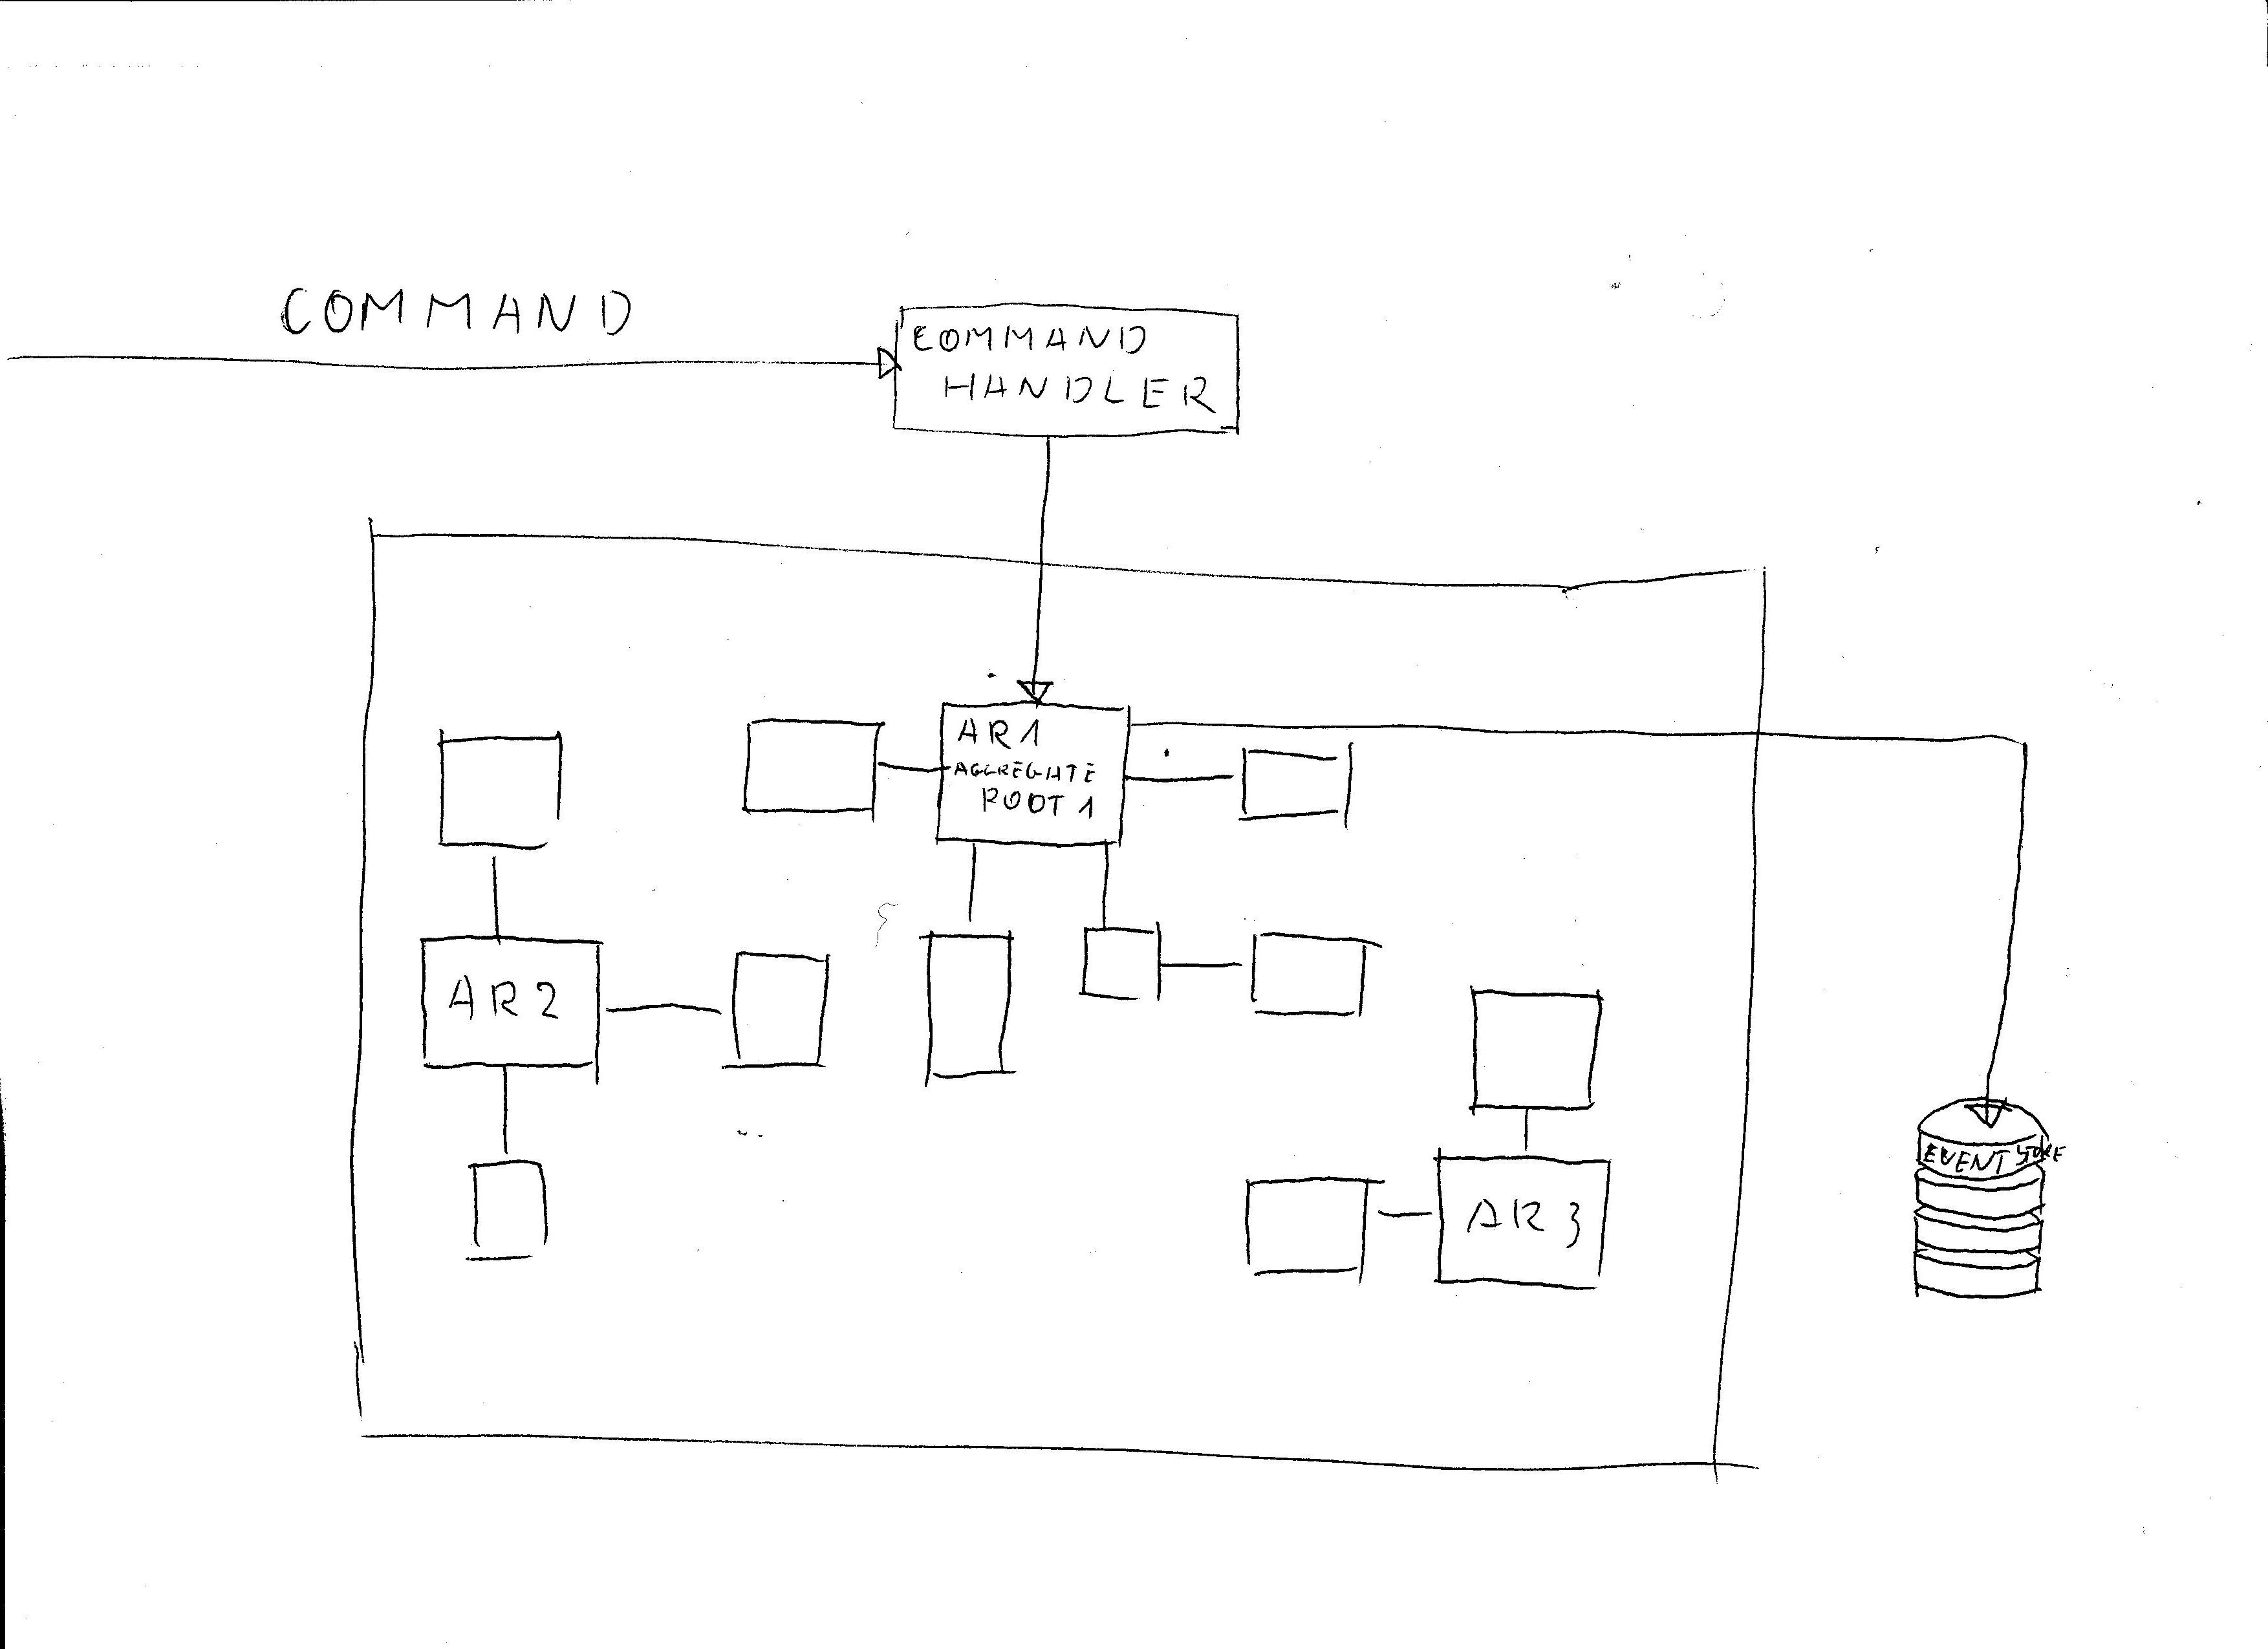 COMMAND
COMMAND
HANDLER
AR1
AGGREGATE
ROOT 1
AR2
AR3
EVENT STORE